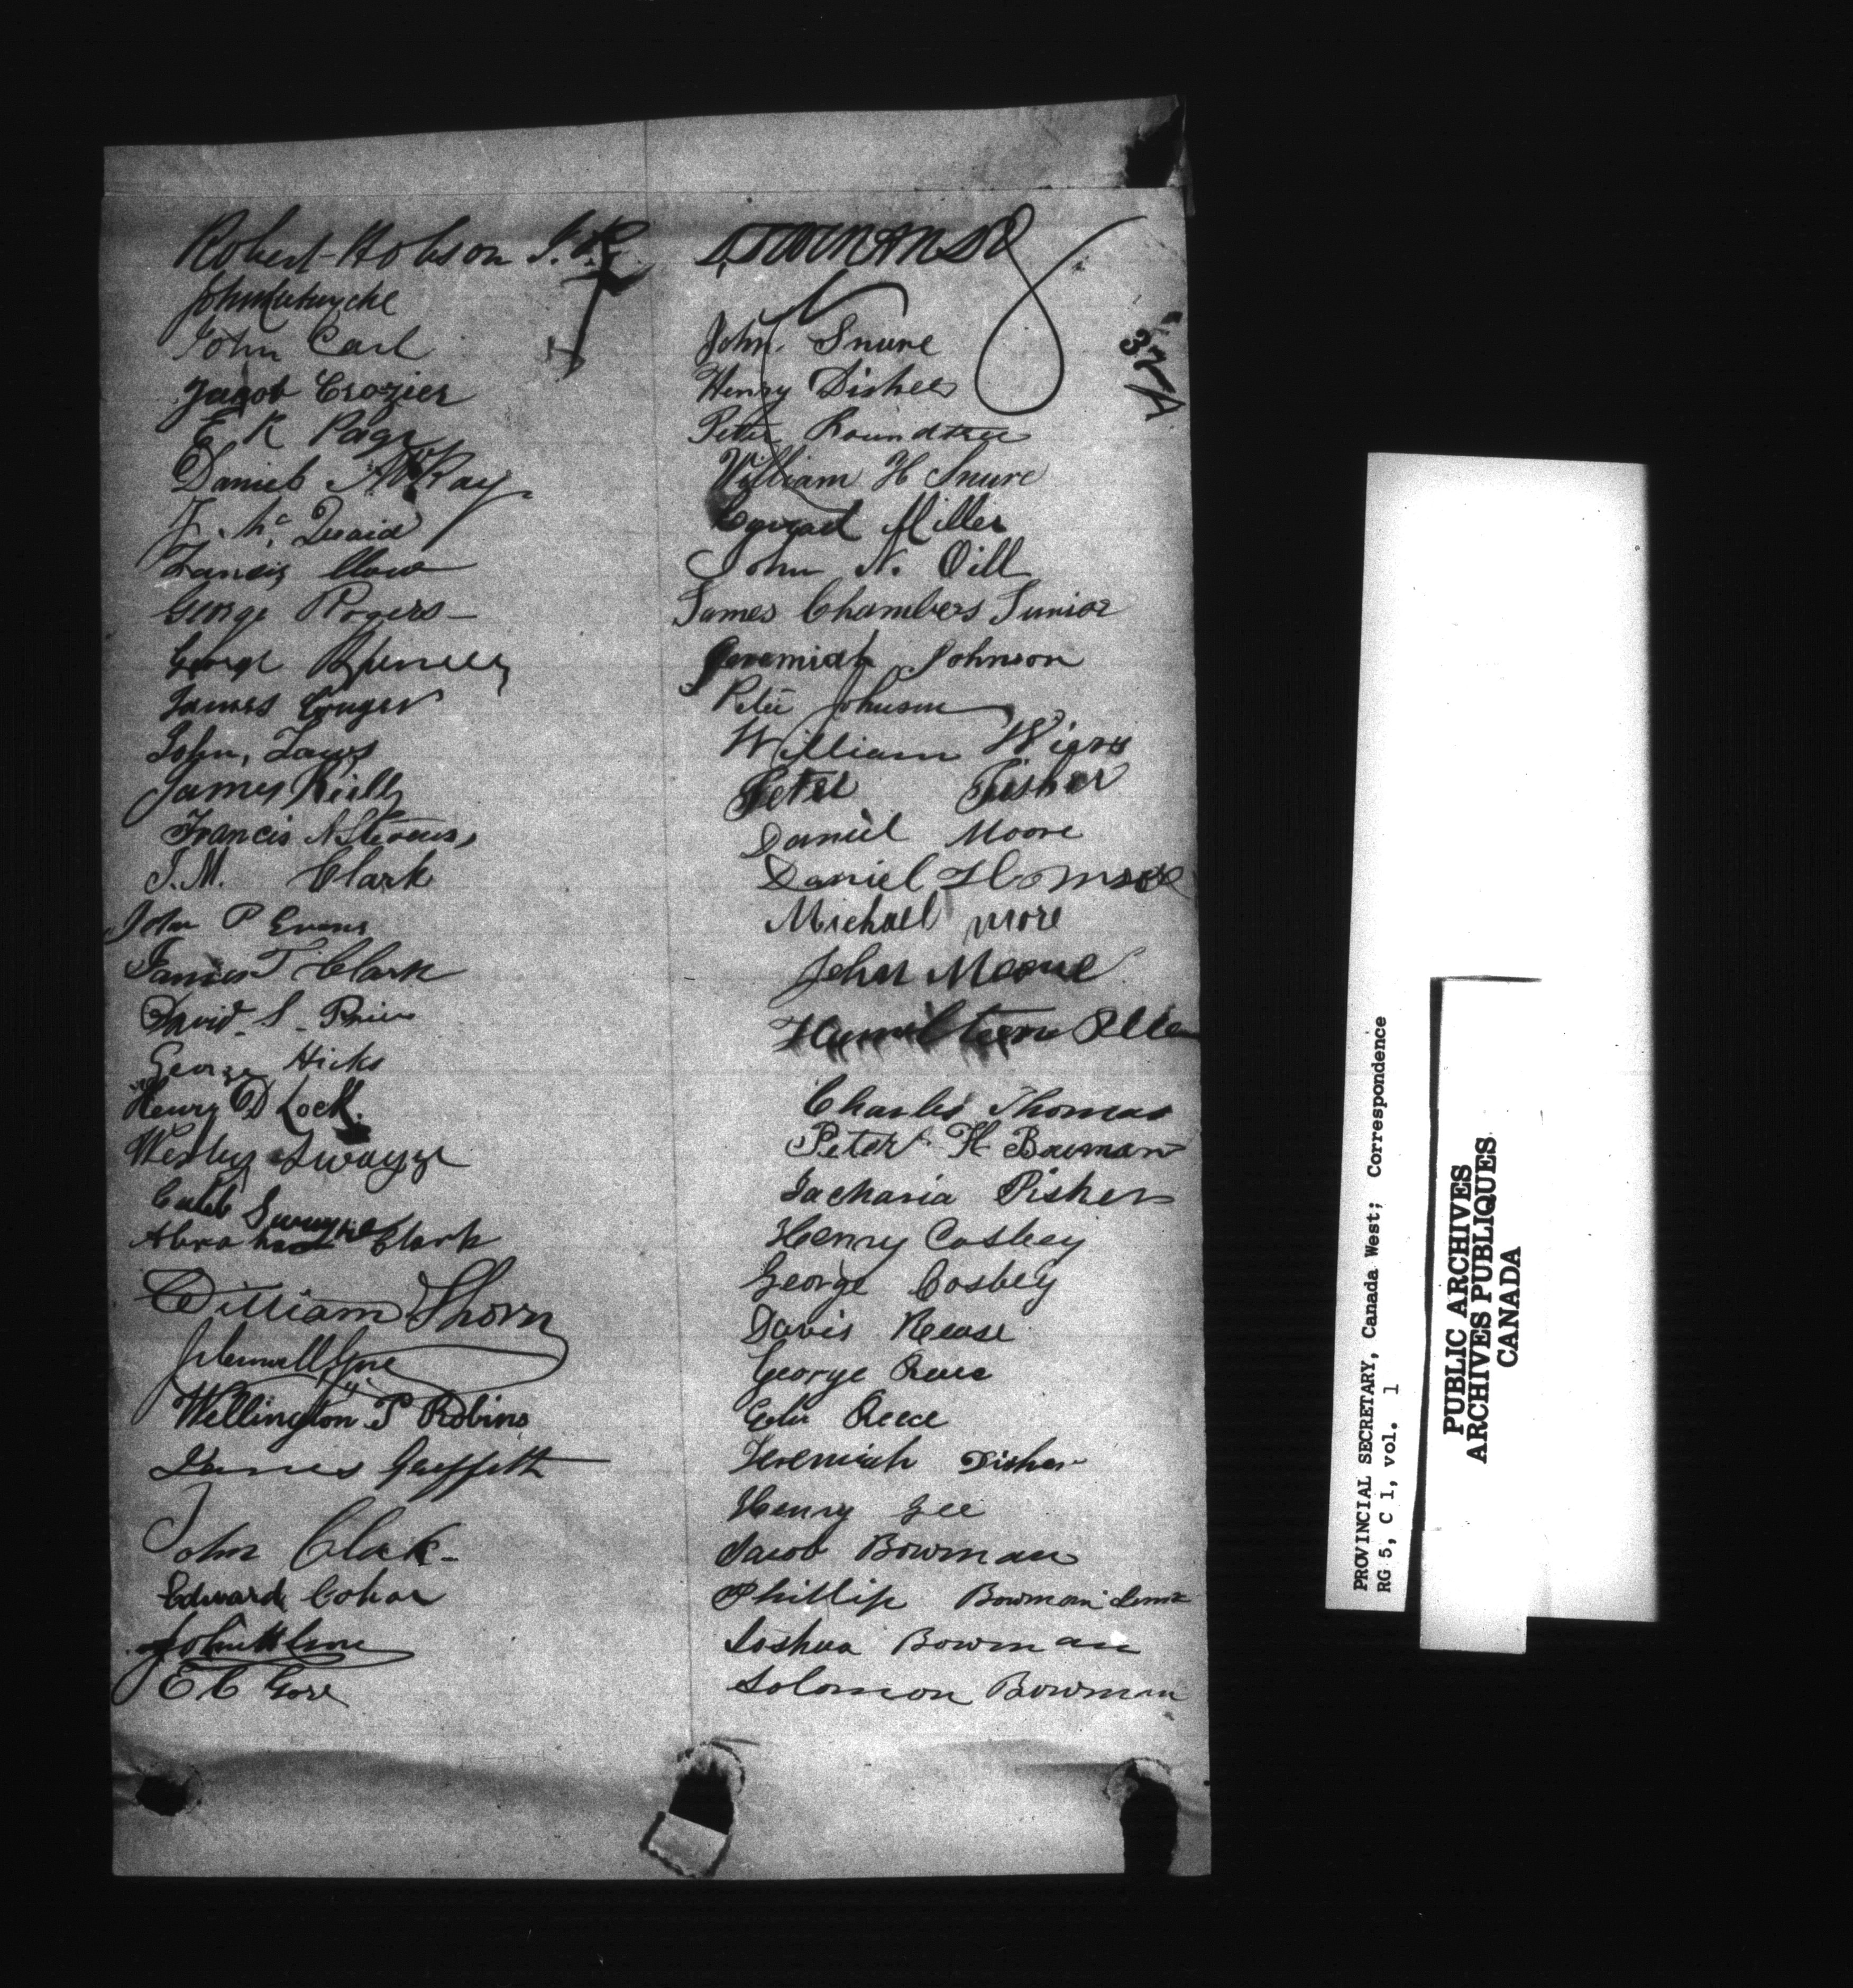 Robert Hobson J.P.
John
John Carl
Jacob Crozier
E R Page
Daniel McKay
J. Mc Quaid
George Rogers
George
James Cruger
John, Laws
James Rielly
Francis N Stevens
J.M. Clark
John P Evans
James T Clark
David S. Price
George Hicks
Henry D Lock.
Wesley Swayze
Caleb Swayze
Abraham Clark
William Thorn
Gore
Wellington P Robins
James Griffith
John Clark
Edward Cohoe
John Kline
E C Gore
John Snure
Henry Disher
Peter Roundtree
William H Snure
Conrad Miller
John N. Oill
James Chambers Junior
Jeremiah Johnson
Peter Johnson
William
Peter Fisher
Daniel Moore
Daniel
Michael More
John Moore
Hamilton
Charles Thomas
Peter H Bowman
Zacharia Fisher
Henry Cosbey
George Cosbey
Davis Reese
George Reece
Reece
Jeremiah Disher
Henry Gee
Jacob Bowman
Phillip Bowman
Joshua Bowman
Solomon Bowman
37A
PROVINCIAL SECRETARY, Canada West; Correspondence
RG 5, C 1, vol. 1
PUBLIC ARCHIVES
ARCHIVES PUBLIQUES
CANADA